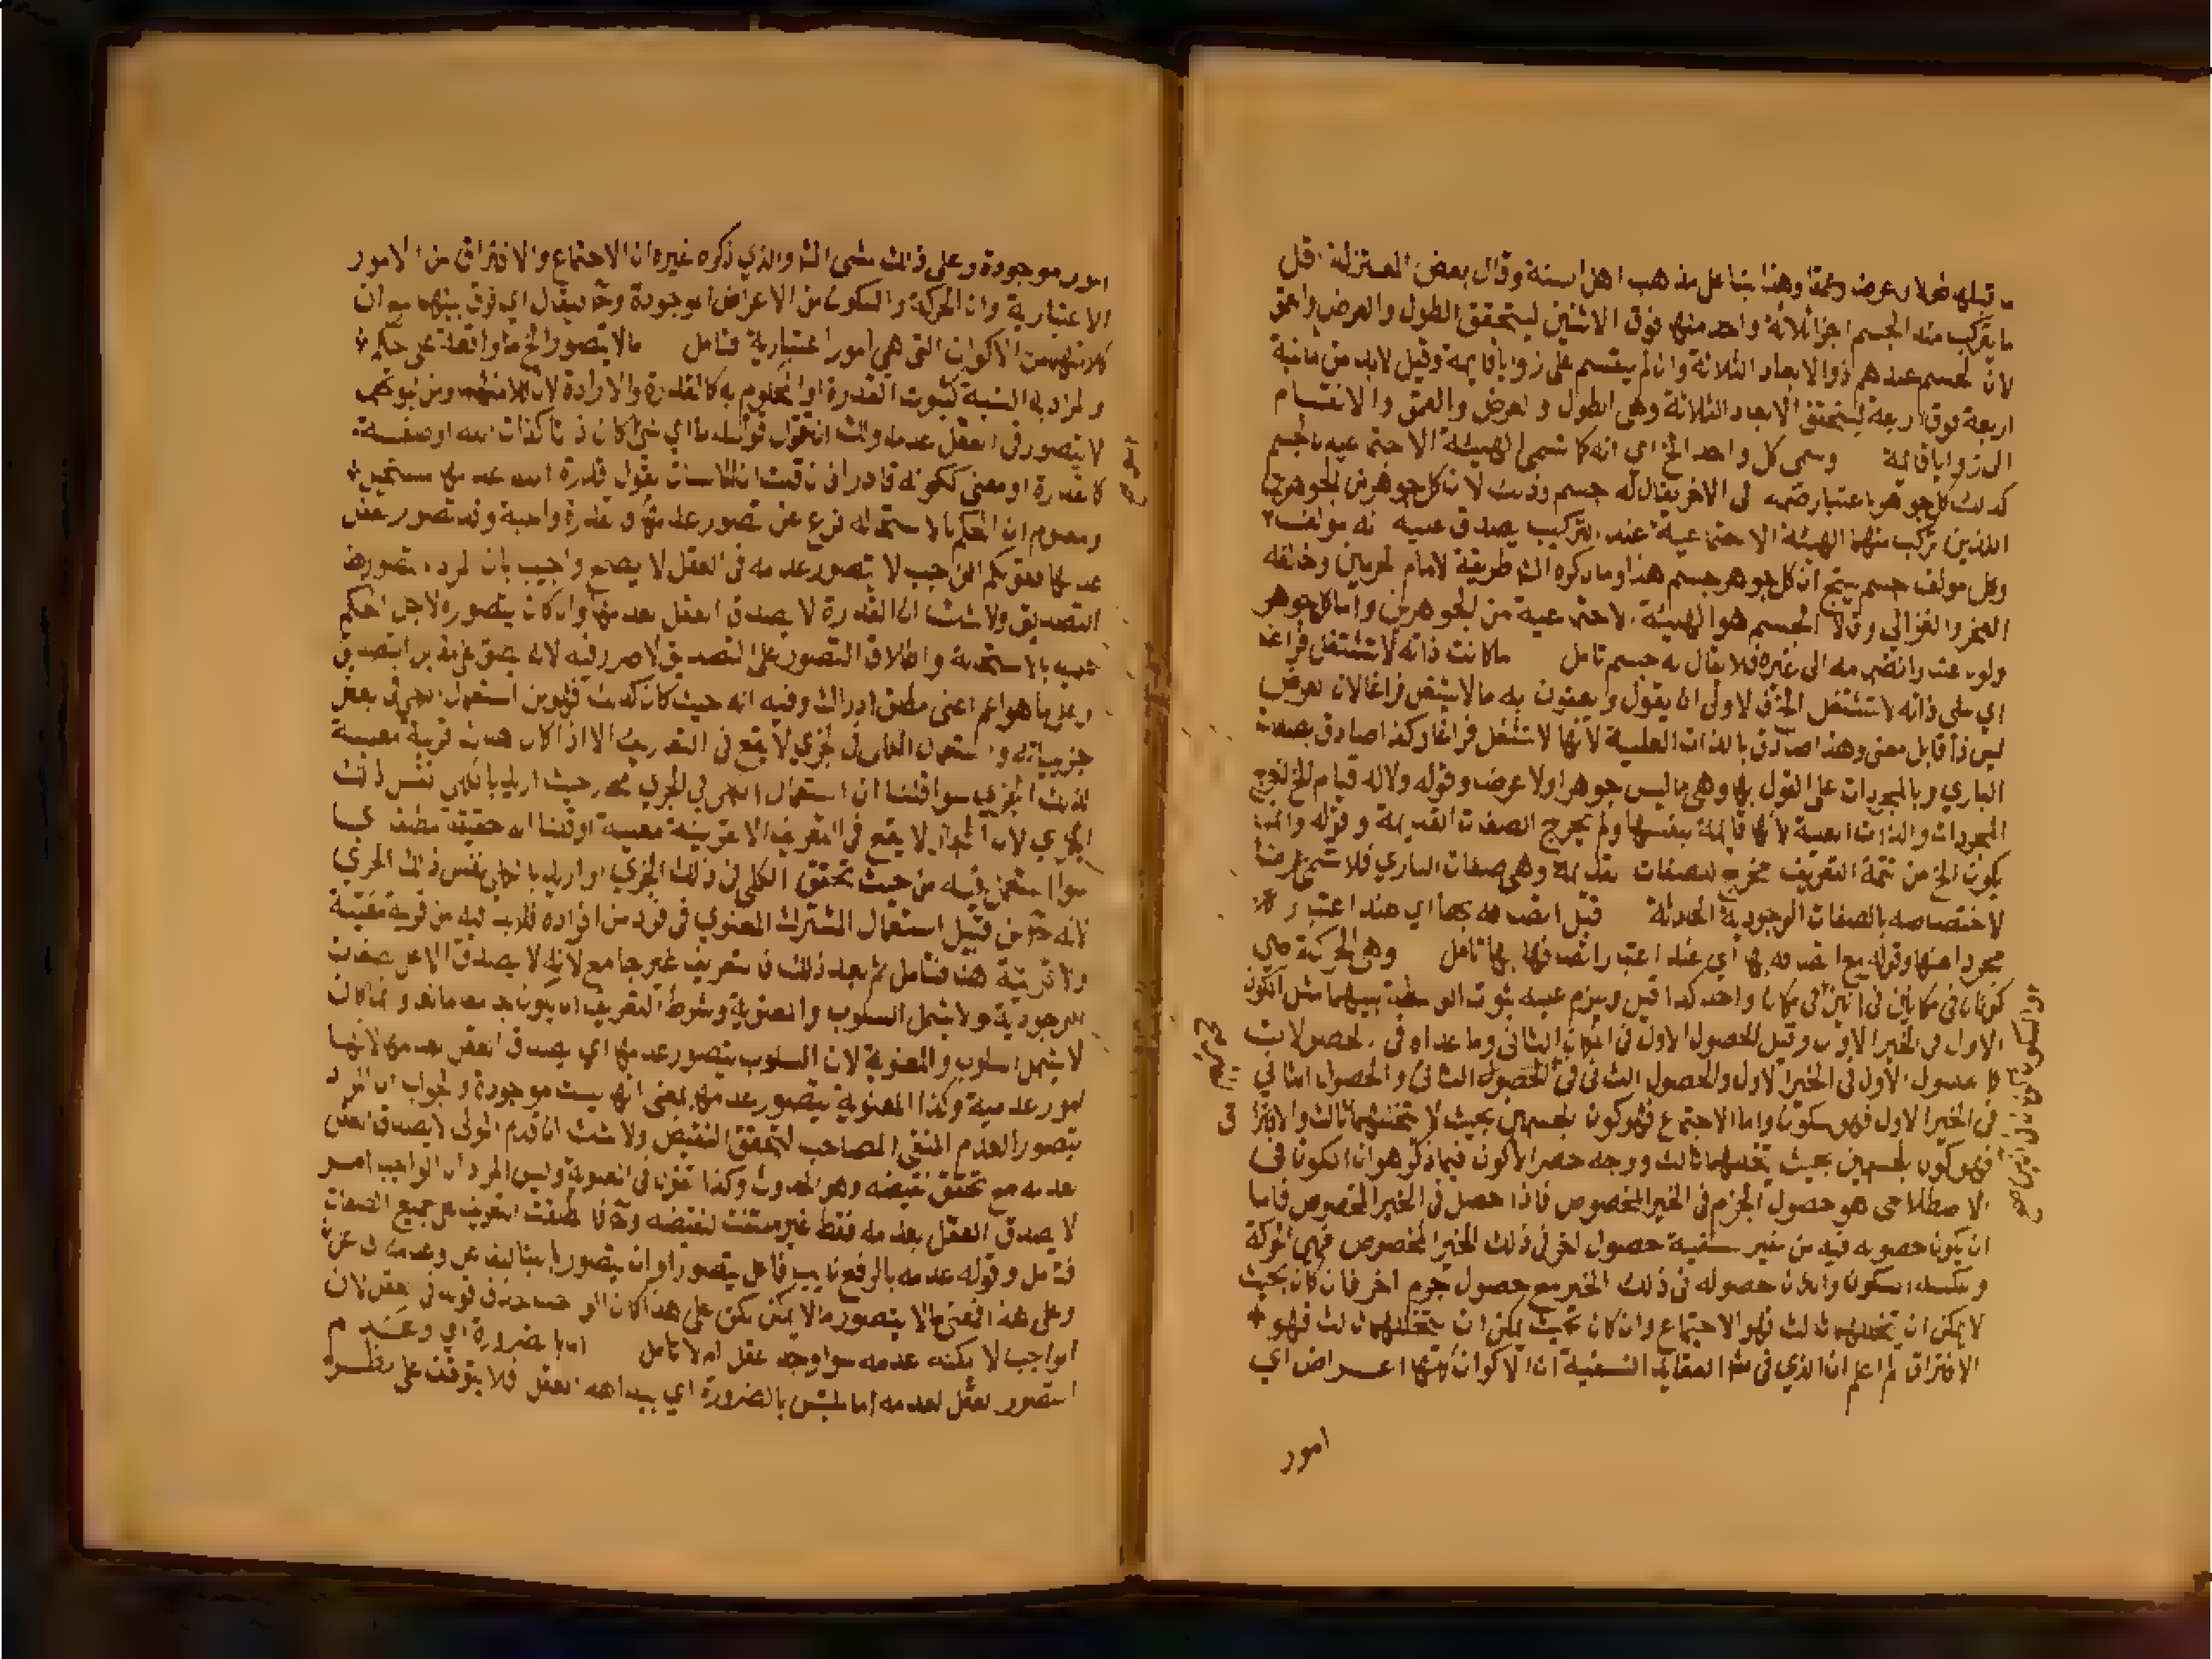 قبلها طولا وعرضا وعمقا وهذا بناء على مذهب اهل السنة وقال بعض المعتزلة اقل
ما يتركب منه الجسم اجزا ثلاثة واحد منها فوق الاثنين ليتحقق الطول والعرض والعمق
لان الجسم عندهم ذو الابعاد الثلاثة وان لم ينقسم على زوايا قايمة وقيل لابد من ثمانية
اربعة فوق اربعة ليتحقق الابعاد الثلاثة وهى الطول والعرض والعمق والانقسام
الى زوايا قايمة وسمى كل واحد الخ اي انه كما تسمى الهيئة الاجتماعية بالجسم
كذلك كل جوهر باعتبار ضمه الى الاخر يقال له جسم وذلك لان كل جوهر من الجوهرين
الذين تركب منهما الهيئة الاجتماعية عند التركيب يصدق عليه انه مولف
وكل مولف جسم ينتج ان كل جوهر جسم هذا وما ذكره الشـ طريقة لامام الحرمين وخالفه
الفخر والغزالي وقالا الجسم هو الهيئة الاجتماعية من الجوهرين واما كل جوهر
ولو عند انضمامه الى غيره فلا يقال له جسم تامل ما كانت ذاته لا تشغل فراغا
اي على ذاته لا تشغل الخ الاولى ان يقول ويعنون به ما لا يشغل فراغا لان العرض
ليس ذا قابل معنى وهذا صادق بالذات العلية لانها لا تشغل فراغا وكذا صادق بصفات
الباري وبالمجردات على القول بها وهى ما ليس جوهرا ولا عرضا وقوله ولا له قيام الخ لخرج
المجردات والذات العلية لانها قايمة بنفسها ولم يخرج الصفات القديمة وقوله وانما
يكون الخ من تتمة التعريف مخرج للصفات القديمة وهى صفات الباري فلا تسمى عرضا
لاختصاصه بالصفات الوجودية الحادثة قبل اتصافه بها اي عند اعتباره
مجردا عنها وقوله مع اتصافه بها اي عند اعتبار اتصافها بها تامل وهى الحركة هى
كونان في مكانين في انين في مكان واحد كذا قيل ويلزم عليه ثبوت الواسطة بينهما مثل الكون
الاول في الحيز الاول وقيل الحصول الاول في الحيز الثاني وما عداه في الحصولات
كا لحصول الاول في الحيز الاول والحصول الثاني في الحصول الثاني والحصول الثاني
في الحيز الاول فهو سكون واما الاجتماع فهو كون الجسمين بحيث لا يتخللهما ثالث والافتراق
فهو كون الجسمين بحيث يتخللهما ثالث ووجه حصر الاكوان فيما ذكر هو ان الكون في
الاصطلاحى هو حصول الجرم في الحيز المخصوص فاذا حصل في الحيز المخصوص فاما
ان يكون حصوله فيه من غير سبقية حصول اخر في ذلك الحيز المخصوص فهى الحركة
وعكسه السكون واما ان حصوله في ذلك الحيز مع حصول جرم اخر فان كان بحيث
لا يمكن ان يتخللهما ثالث فهو الاجتماع وان كان بحيث يمكن ان يتخللهما ثالث فهو
الافتراق ثم اعلم ان الذي في شـ العقايد النسفية ان الاكوان كلها اعـراض اي
امور
امور موجودة وعلى ذلك مشى الشـ والذي ذكره غيره ان الاجتماع والافتراق من الامور
الاعتبارية وان الحركة والسكون من الاعراض الموجودة وح يقال اي فرق بينهما مع ان
كلا منهما من الاكوان التي هى امور اعتبارية فتامل مالا يتصور الخ ما واقعة على حكم
والمراد به النسبة كثبوت القدرة او المحكوم به كالقدرة والارادة
لا يتصور في العقل عدمه ولك ان تقول قوله ما اي شئ كان ذاتا كذات الله او صفة
كالقدرة او معنى ككونه قادرا فان قلت ان الانسان يقول قدرة الله عدمها مستحيل
ومعلوم ان الحكم بالاستحالة فرع عن تصور عدمها والقدرة واجبة وقد تصور العقل
عدمها فقولكم الواجب لا يتصور عدمه في العقل لا يصح واجيب بان المراد بالتصور هنا
التصديق ولا شك ان القدرة لا يصدق العقل بعدمها وان كان يتصوره لاجل الحكم
عليه بالاستحالة واطلاق التصور على التصديق لا ضرر فيه
ما هو اعم اعنى مطلق ادراك وفيه انه حيث كان كذلك فهو من استعمال العام في بعض
جزيياته واستعمال الكلى في الجزي لا يقع في التعاريف الا اذا كان هناك قرينة معينة
لذلك الجزي سوا قلنا ان استعمال الكلى في الجزي مجاز حيث اريد بالكلى نفس ذلك
الجزي لان المجاز لا يقع في التعريف الا بقرينة معينة او قلنا انه حقيقة مطلقا
سوا استعمل فيه من حيث تحقق الكلى في ذلك الجزي او اريد بالكلى نفس ذلك الجزي
لانه ح من قبيل استعمال المشترك المعنوي في فرد من افراده فلابد فيه من قرينة معينة
ولا قرينة هنا فتامل ثم بعد ذلك فالتعريف غير جامع لانه لا يصدق الا على صفات
الوجودية ولا يشمل السلوب والمعنوية وشرط التعريف ان يكون جامعا مانعا وانما كان
لا يشمل السلوب والمعنوية لان السلوب يتصور عدمها اي يصدق العقل بعدمها لانها
امور عدمية وكذا المعنوية يتصور عدمها بمعنى انها ليست موجودة والجواب ان المراد
بتصور العدم المنفى المصاحب لتحقق النقيض ولا شك ان قدم المولى لا يصدق العقل
بعدمه مع تحقق نقيضه وهو الحدوث وكذا تقول في المعنوية وليس المراد ان الواجب امـر
لا يصدق العقل بعدمه فقط غير ملتفت لنقيضه وح فانطبقت التعريف على جميع الصفات
فتامل وقوله عدمه بالرفع نايب فاعل يتصور او ان يتصور بالبناء للفاعل وعدمه فاعل
وعلى هذا فمعنى مالا يتصور مالا يمكن لكن على هذا كان الاولى حذف قوله في العقل لان
الواجب لا يمكن عدمه سوا وجد عقل ام لا تامل اما بالضرورة اي وعـدم
تصور العقل لعدمه اما ملتبس بالضرورة اي ببداهة العقل فلا يتوقف على نظـر